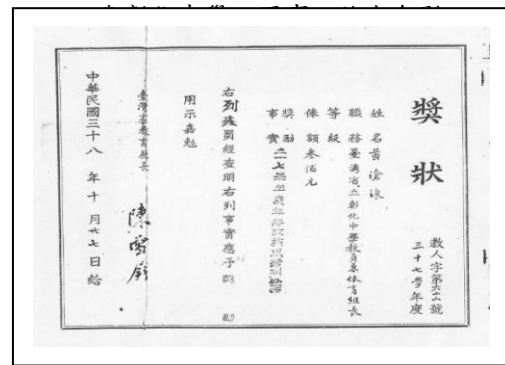 獎狀
教人字第六二號
三十七學年度
姓名黃滄浪
職務臺灣省立彰化中學教員兼體育組長
等級
俸額叁佰元
獎勵
事實
右列義員經查明右列事實應予
用示嘉勉
臺灣省教育廳長 陳雪屏
中華民國三十八年十月廿七日給